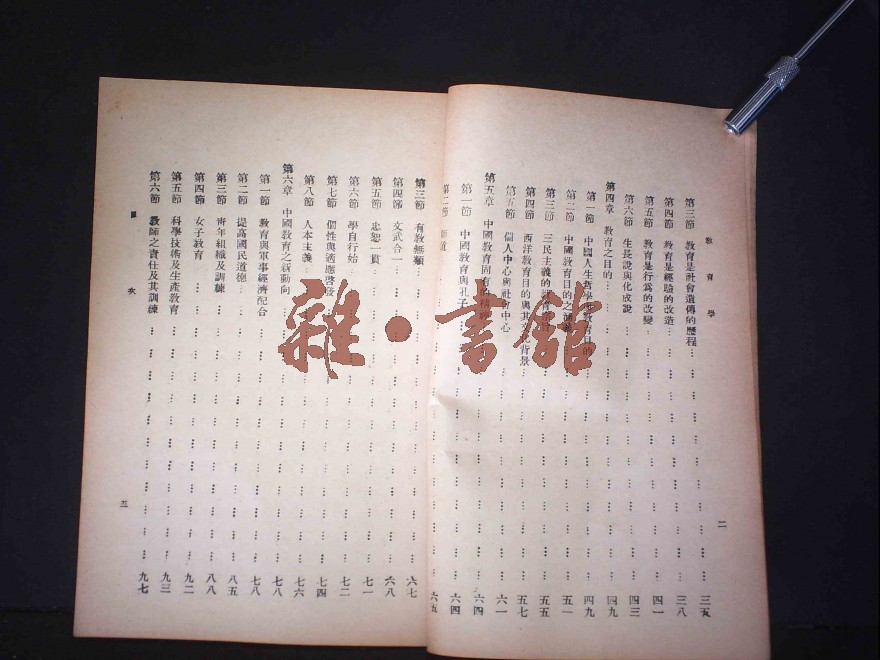 教育學
第三節 教育是社會遺傳的歷程 三五
第四節 教育是經驗的改造 三八
第五節 教育是行為的改變 四一
第六節 生長說與化成說 四三
第四章 教育之目的 四九
第一節 中國人生哲學與教育目的 四九
第二節 中國教育目的之演進 五一
第三節 三民主義的 五五
第四節 西洋教育目的與其 背景 五七
第五節 個人中心與社會中心 六一
第五章 中國教育固有的精神 六四
第一節 中國教育與孔子 六四
第二節 師道
二
第三節 有教無類 六七
第四節 文武合一 六八
第五節 忠恕一貫 七一
第六節 學自行始 七二
第七節 個性與適應啓發 七四
第八節 人本主義 七六
第六章 中國教育之新動向 七八
第一節 教育與軍事經濟配合 七八
第二節 提高國民道德 八五
第三節 青年組織及訓練 八八
第四節 女子教育 九二
第五節 科學技術及生產教育 九三
第六節 教師之責任及其訓練 九七
目次
三
雜·書館